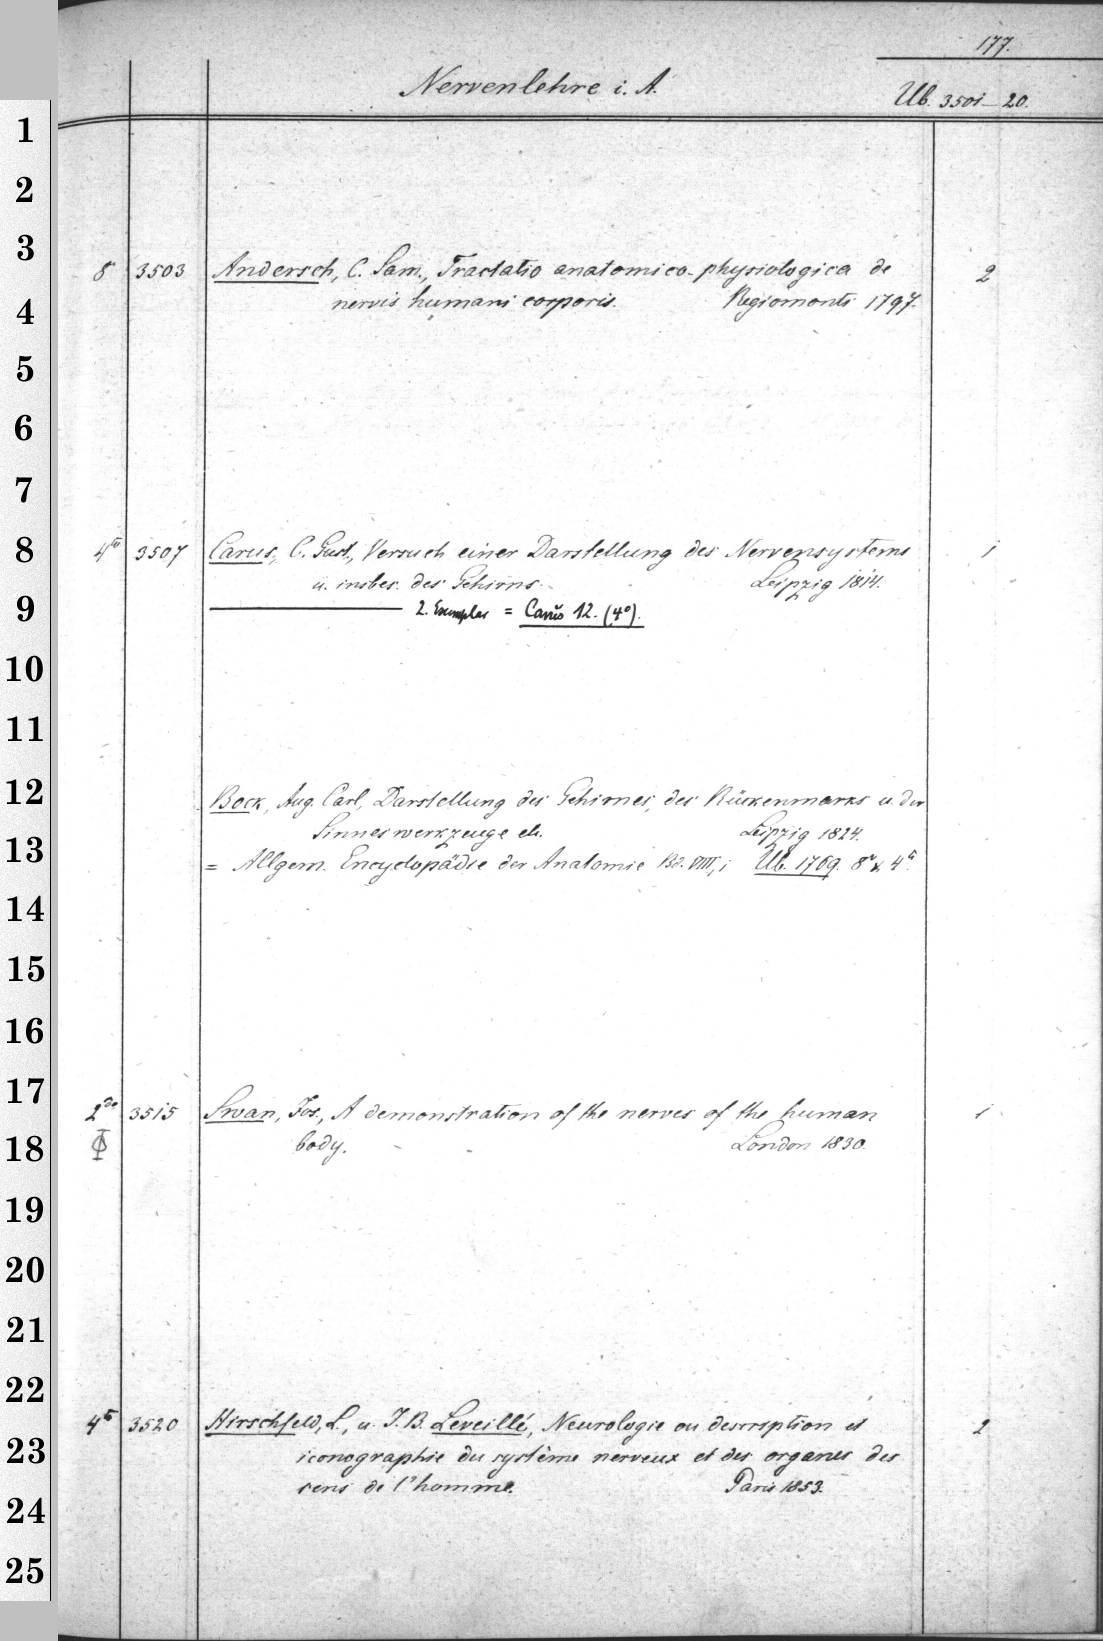 177.
Nervenlehre i. A.
Ub. 3501-20.
1
2
3
8 3503 Andersch, C. Sam., Tractatio anatomico-physiologica de 2
nervis humani corporis. Regiomonti 1797.
4
5
6
7
8
4to 3507 Carus, C. Gust., Versuch einer Darstellung des Nervensystems 1
u. insbes. des Gehirns. Leipzig 1814.
9
2. Exemplar = Carus 12. (4°).
10
11
12
Bock, Aug. Carl, Darstellung des Gehirnes, des Rückenmarks u. der
Sinneswerkzeuge etc. Leipzig 1824.
13
= Allgem. Encyclopädie der Anatomie Bd. VIIII, i Ub. 1769. 8° & 4to
14
15
16
17
2do 3515 Swan, Jos., A demonstration of the nerves of the human 1
18
Φ body. London 1830.
19
20
21
22
4to 3520 Hirschfeld, L., u. J. B. Leveillé, Neurologie ou description et 2
23
iconographie du système nerveux et des organes des
sens de l'homme. Paris 1853.
24
25